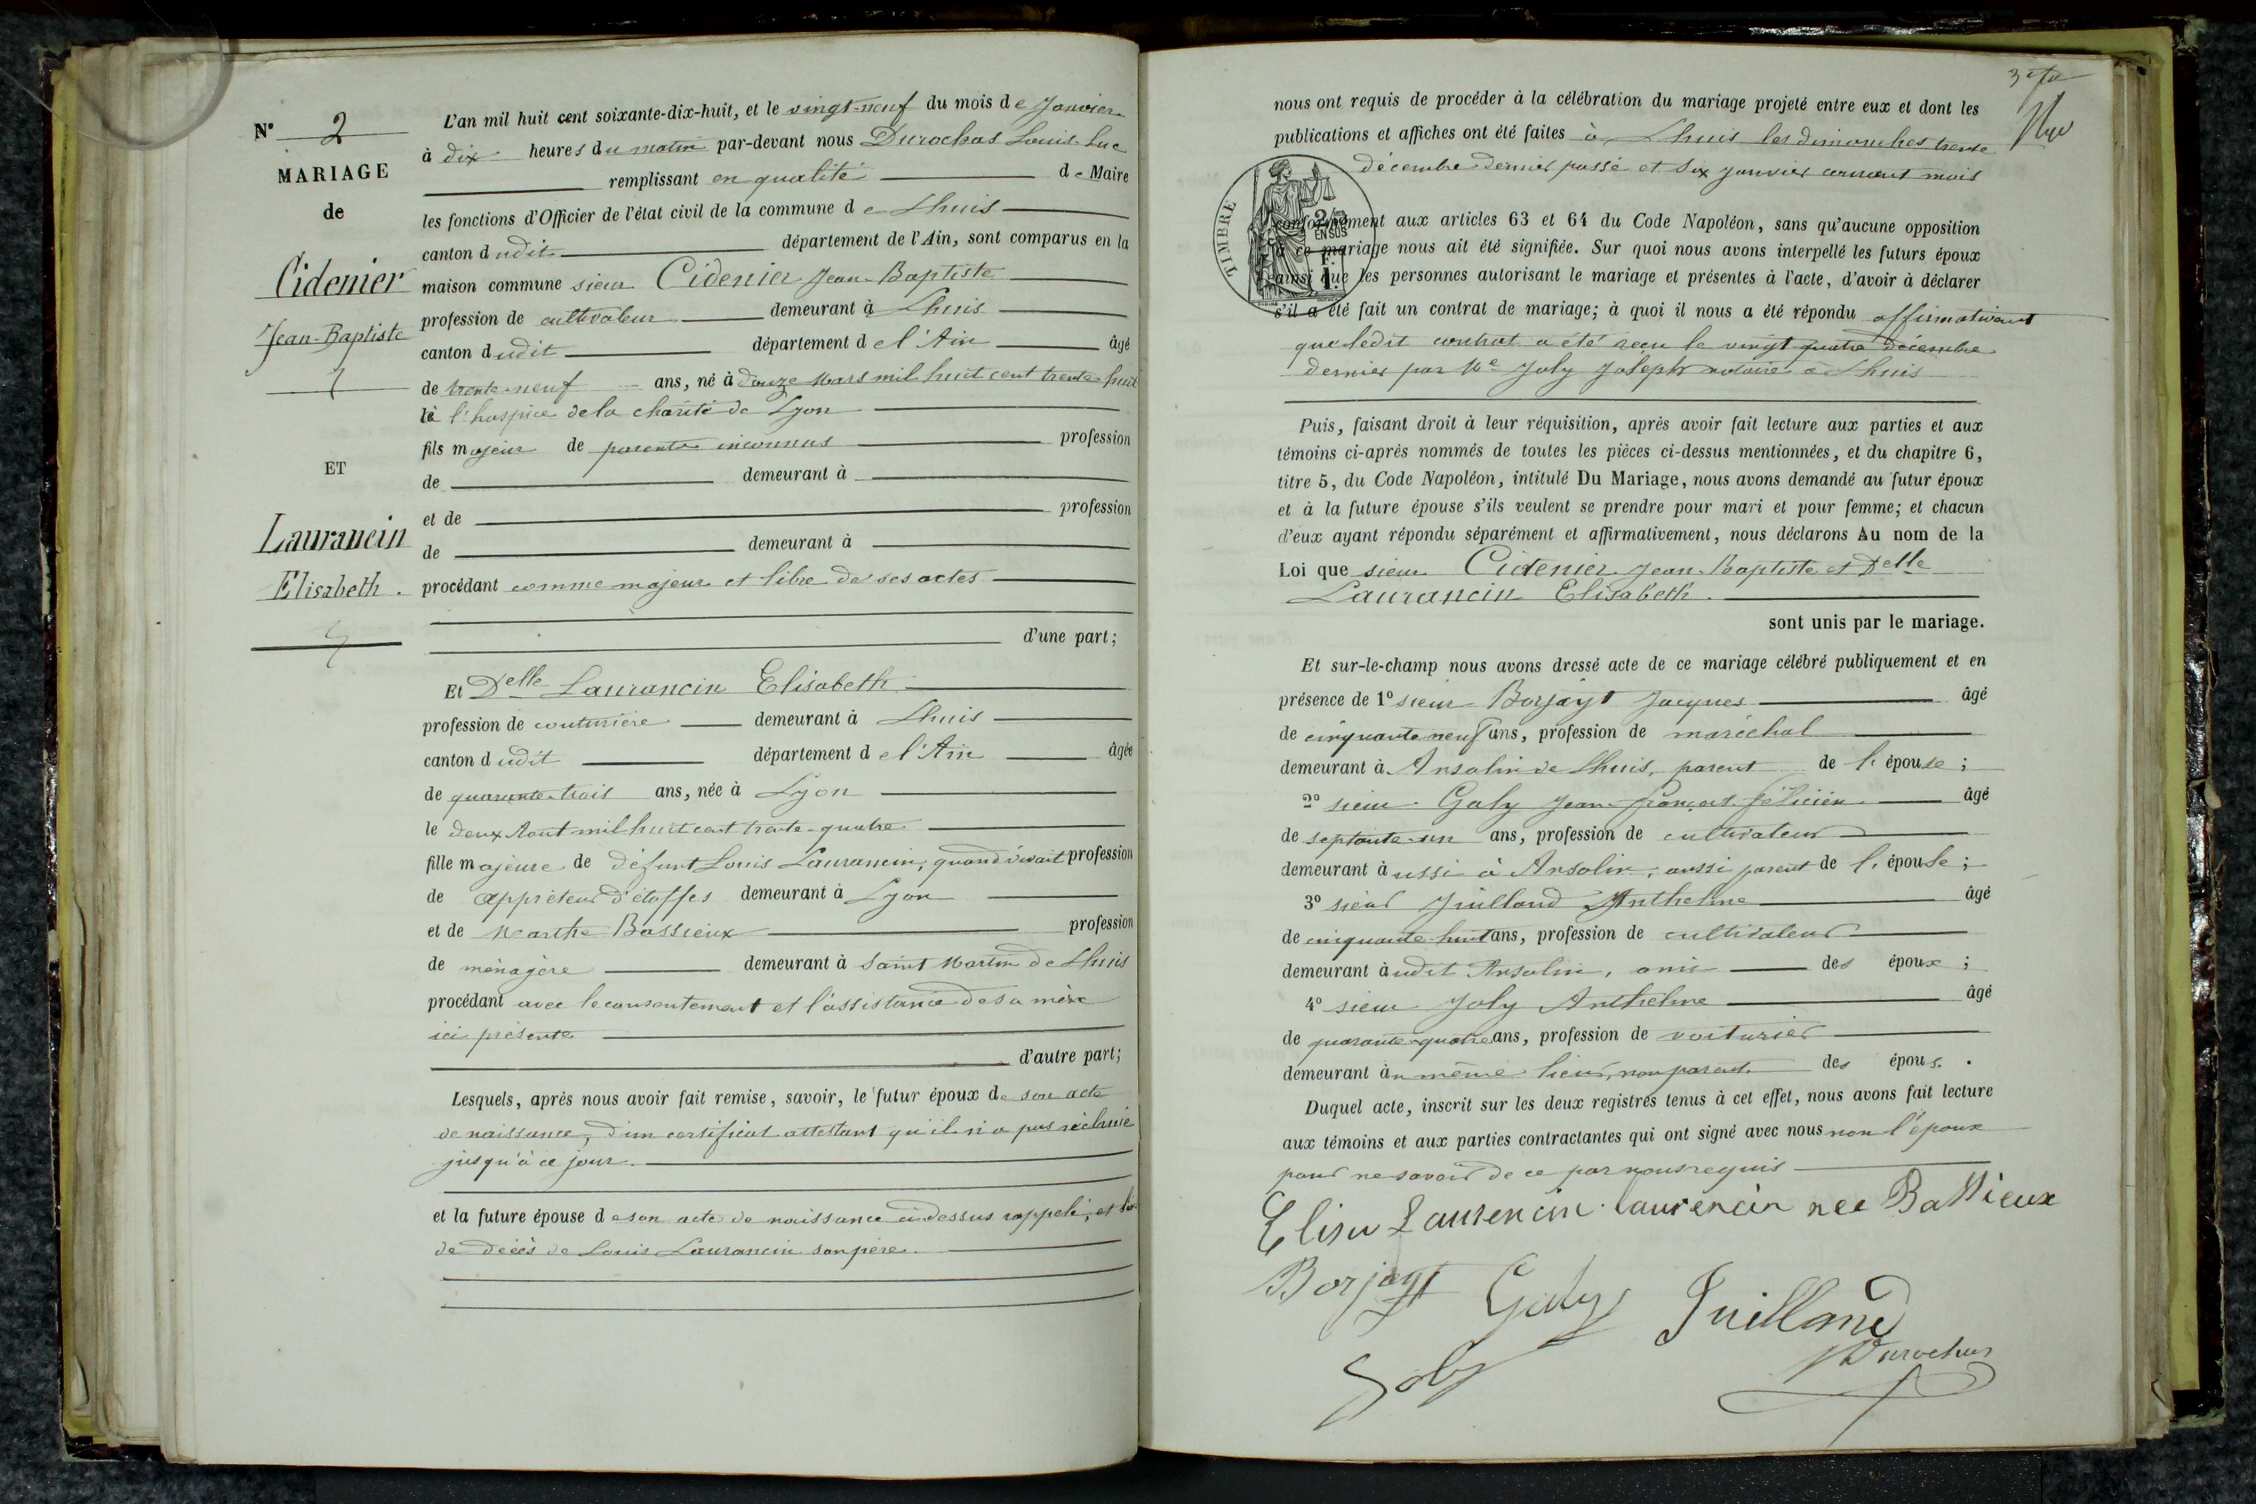 N° 2
MARIAGE
de
Cidenier
Jean-Baptiste
ET
Laurancin
Elisabeth.
L'an mil huit cent soixante-dix-huit, et le vingt-neuf du mois de Janvier
à dix heures du matin par-devant nous Durochas Louis Luc
remplissant en qualité de Maire
les fonctions d'Officier de l'état civil de la commune de Lhuis
canton dudit département de l'Ain, sont comparus en la
maison commune sieur Cidenier Jean-Baptiste
profession de cultivateur demeurant à Lhuis
canton dudit département de l'Ain âgé
de trente-neuf ans, né à douze Mars mil huit cent trente-huit
à l'hospice de la charité de Lyon
fils majeur de parents inconnus profession
de demeurant à
et de profession
de demeurant à
procédant comme majeur et libre de ses actes
d'une part;
Et Delle Laurancin Elisabeth
profession de couturière demeurant à Lhuis
canton dudit département de l'Ain âgée
de quarante-trois ans, née à Lyon
le deux Aout mil huit cent trente-quatre
fille majeure de défunt Louis Laurancin, quand vivait profession
de apprêteur d'étoffes demeurant à Lyon
et de Marthe Bassieux profession
de ménagère demeurant à Saint Martin de Lhuis
procédant avec le consentement et l'assistance de sa mère
ici présente
d'autre part;
Lesquels, après nous avoir fait remise, savoir, le futur époux de son acte
de naissance, d'un certificat attestant qu'il n'a pas réclamé
jusqu'à ce jour.
et la future épouse de son acte de naissance ci-dessus rappelé, et
de décès de Louis Laurancin son père.
nous ont requis de procéder à la célébration du mariage projeté entre eux et dont les
publications et affiches ont été faites à Lhuis les dimanches trente
décembre dernier passé et six janvier courant mois
TIMBRE
2/10
EN SUS
conformément aux articles 63 et 64 du Code Napoléon, sans qu'aucune opposition
à ce mariage nous ait été signifiée. Sur quoi nous avons interpellé les futurs époux
ainsi que les personnes autorisant le mariage et présentes à l'acte, d'avoir à déclarer
s'il a été fait un contrat de mariage; à quoi il nous a été répondu affirmativement
que ledit contrat a été recu le vingt quatre décembre
dernier par Me Joly Joseph notaire à Lhuis
Puis, faisant droit à leur réquisition, après avoir fait lecture aux parties et aux
témoins ci-après nommés de toutes les pièces ci-dessus mentionnées, et du chapitre 6,
titre 5, du Code Napoléon, intitulé Du Mariage, nous avons demandé au futur époux
et à la future épouse s'ils veulent se prendre pour mari et pour femme; et chacun
d'eux ayant répondu séparément et affirmativement, nous déclarons Au nom de la
Loi que sieur Cidenier Jean-Baptiste et Delle
Laurancin Elisabeth.
sont unis par le mariage.
Et sur-le-champ nous avons dressé acte de ce mariage célébré publiquement et en
présence de 1° sieur Borjayt Jacques âgé
de cinquante neuf ans, profession de maréchal
demeurant à Ansolin de Lhuis, parent de l'épouse;
2° sieur Galy Jean-françois félicien âgé
de septante-un ans, profession de cultivateur
demeurant aussi à Ansolin, aussi parent de l'épouse;
3° sieur Juilland Anthelme âgé
de cinquante huit ans, profession de cultivateur
demeurant àudit Ansolin, ami des époux;
4° sieur Joly Anthelme âgé
de quarante-quatre ans, profession de voiturier
demeurant àn même lieu, non parent des époux.
Duquel acte, inscrit sur les deux registres tenus à cet effet, nous avons fait lecture
aux témoins et aux parties contractantes qui ont signé avec nous non l'époux
pour ne savoir de ce par nous requis
Elisa Laurencin laurencin nee Bassieux
Borjayt Galy Juilland
Joly Durochas